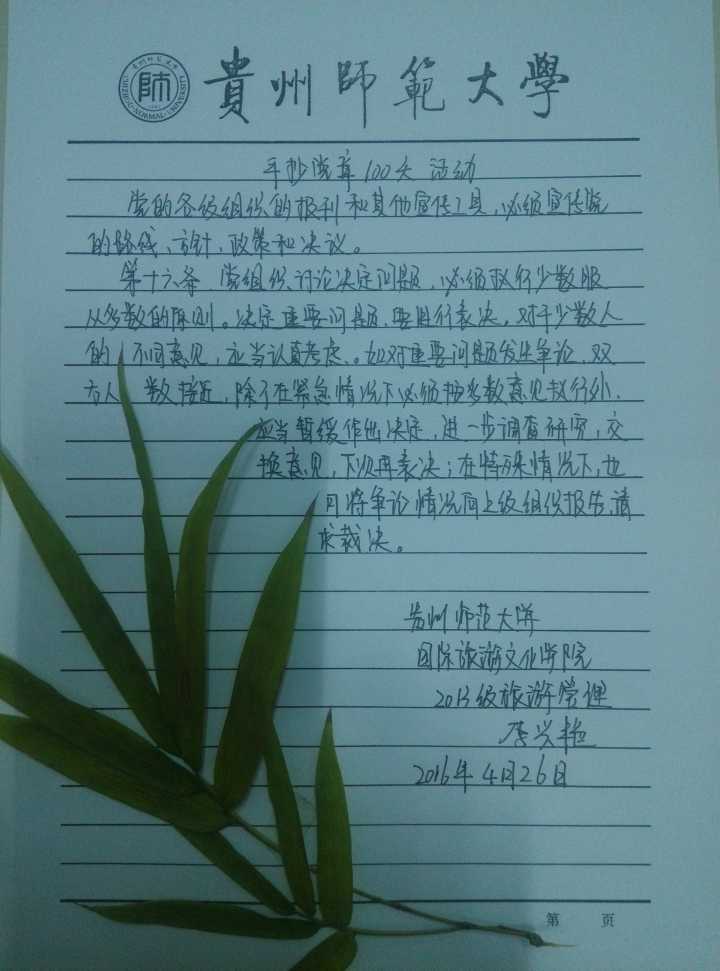 貴州師範大學
師
GUIZHOU NORMAL UNIVERSITY
手抄党章100天 活动
党的各级组织的报刊和其他宣传工具，必须宣传党
的路线、方针、政策和决议。
第十六条 党组织讨论决定问题，必须执行少数服
从多数的原则。决定重要问题，要进行表决。对于少数人
的 不同意见，应当认真考虑。如对重要问题发生争论，双
方人 数接近，除了在紧急情况下必须按多数意见执行外，
应当暂缓作出决定，进一步调查研究，交
换意见，下次再表决；在特殊情况下，也
可将争论情况向上级组织报告，请
求裁决。
贵州师范大学
国际旅游文化学院
2013级旅游管理
李兴艳
2016年4月26日
第 页